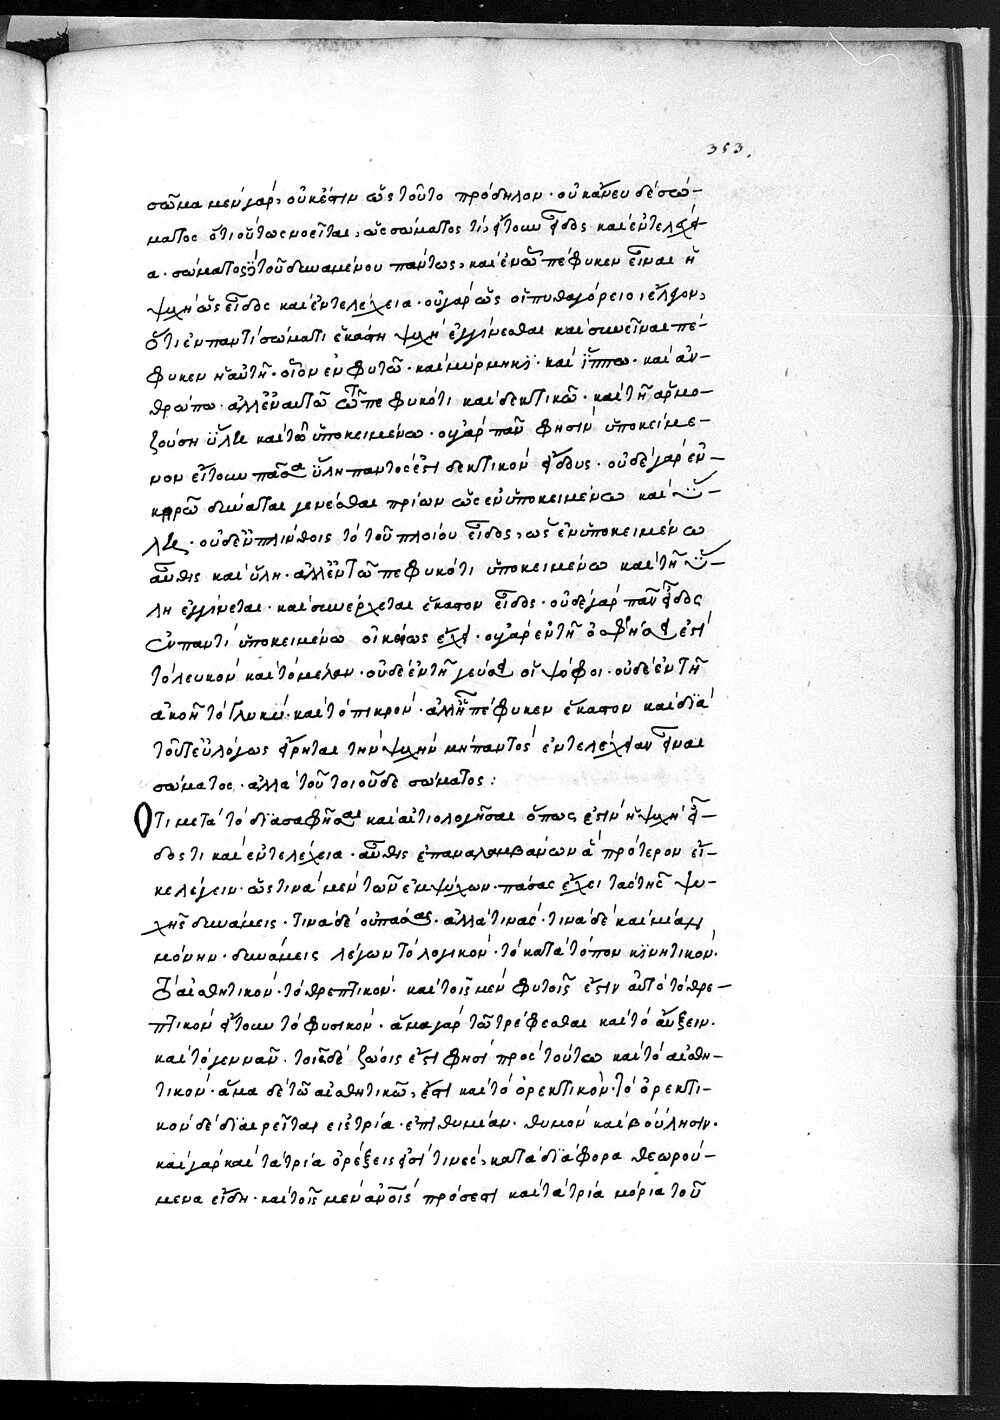 353.
σῶμα μὲν γὰρ, οὐκ ἔστιν ὡς τοῦτο πρόδηλον · οὐκ ἄνευ δὲ σώ-
ματος ὅτι οὕτως νοεῖται, ὡς σώματός τι, ἤτοι εἶδος καὶ ἐντελέχει-
α · σώματος τοῦ δυναμένου πάντως, καὶ ἐν ᾧ πέφυκεν εἶναι ἡ
ψυχὴ ὡς εἶδος καὶ ἐντελέχεια · οὐ γὰρ ὡς οἱ πυθαγόρειοι ἔλεγον,
ὅτι ἐν παντὶ σώματι ἑκάστη ψυχὴ ἐγγίνεσθαι καὶ συνεῖναι πέ-
φυκεν ἡ αὐτή · οἷον ἐν φυτῷ · καὶ μύρμηκι · καὶ ἵππω · καὶ ἀν-
θρώπω · ἀλλ' ἐν αὐτῷ τῷ πεφυκότι καὶ δεκτικῷ · καὶ τῇ ἁρμο-
ζούση ὕλη καὶ τῷ ὑποκειμένω · οὐ γὰρ πᾶν φησὶν ὑποκείμε-
νον ἤτοι πᾶσα ὕλη παντός ἐστι δεκτικὸν εἴδους · οὐδὲ γὰρ ἐν
κηρῷ δύναται γενέσθαι πρίων ὡς ἐν ὑποκειμένω καὶ ὕ-
λη · οὐδ' ἐν πλίνθοις τὸ τοῦ πλοίου εἶδος, ὡς ἐν ὑποκειμένω
αὖθις καὶ ὕλη · ἀλλ' ἐν τῷ πεφυκότι ὑποκειμένω καὶ τῇ ὕ-
λη ἐγγίνεται · καὶ συνέρχεται ἕκαστον εἶδος · οὐδὲ γὰρ πᾶν εἶδος
ἐν παντὶ ὑποκειμένω οἰκείως ἔχει · οὐ γὰρ ἐν τῇ ὀσφρήσει ἐστὶ
τὸ λευκὸν καὶ τὸ μέλαν · οὐδὲ ἐν τῇ γεύσει οἱ ψόφοι · οὐδὲ ἐν τῇ
ἀκοῇ τὸ γλυκὺ · καὶ τὸ πικρὸν · ἀλλ' ᾗ πέφυκεν ἕκαστον καὶ διὰ
τοῦτ' εὐλόγως εἴρηται τὴν ψυχὴν μὴ παντὸς ἐντελέχειαν εἶναι
σώματος · ἀλλὰ τοῦ τοιοῦδε σώματος :
Ὅτι μετὰ τὸ διασαφῆσαι καὶ αἰτιολογῆσαι ὅπως ἐστὶν ἡ ψυχὴ εἶ-
δός τι καὶ ἐντελέχεια · αὖθις ἐπαναλαμβάνων ἃ πρότερον εἴ-
κε λέγειν · ὥς τινα μὲν τῶν ἐμψύχων · πάσας ἔχει τὰς τῆς ψυ-
χῆς δυνάμεις · τινὰ δὲ οὐ πάσας · ἀλλὰ τινάς · τινὰ δὲ καὶ μίαν
μόνην · δυνάμεις λέγων τὸ λογικὸν · τὸ κατὰ τόπον κινητικὸν ·
τὸ αἰσθητικὸν · τὸ θρεπτικὸν · καὶ τοῖς μὲν φυτοῖς ἔστιν αὐτὸ τὸ θρε-
πτικὸν ἤτοι τὸ φυσικὸν · ἅμα γὰρ τῷ τρέφεσθαι καὶ τὸ αὔξειν ·
καὶ τὸ γεννᾶν · τοῖς δὲ ζώοις ἔστι φησὶ πρὸς τούτω καὶ τὸ αἰσθη-
τικὸν · ἅμα δὲ τῷ αἰσθητικῷ, ἔστι καὶ τὸ ὀρεκτικὸν · τὸ ὀρεκτι-
κὸν δὲ διαιρεῖται εἰς τρία · ἐπιθυμίαν · θυμὸν καὶ βούλησιν ·
καὶ γὰρ καὶ τὰ τρία ὀρέξεις εἰσί τινες, κατὰ διάφορα θεωρού-
μενα εἴδη · καὶ τοῖς μὲν αὐτοῖς πρόσεστι καὶ τὰ τρία μόρια τοῦ